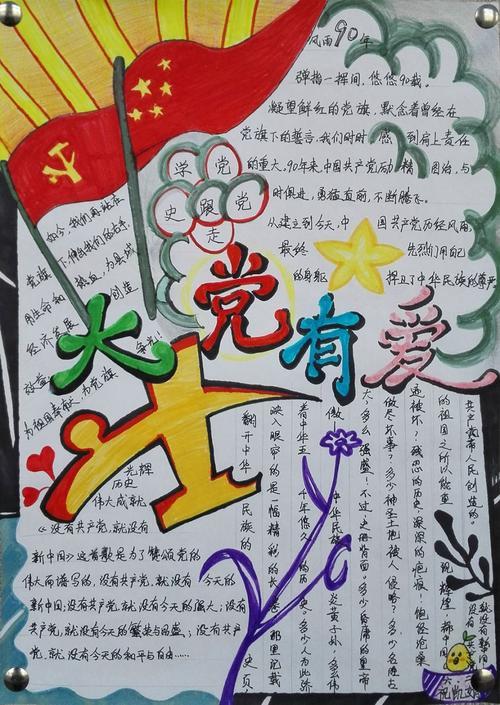 风雨90年
弹指一挥间，悠悠90载。
凝望鲜红的党旗，默念着曾经在
党旗下的誓言，我们时时感到肩上责任
的重大。90年来，中国共产党励精图治，与
时俱进，勇猛直前，不断腾飞。
从建立到今天，中国共产党历经风雨，
最终 先烈们用自己
的身躯 捍卫了中华民族的尊严
学党
史跟党
走
如今，我们再站在
党旗下
用生命和热血，为县域
经济发展创造
效益，为党旗争光！
为祖国奉献
大党有爱
光辉
历史
伟大成就
《没有共产党，就没有
新中国》这首歌是为了赞颂党的
伟大而谱写的，没有共产党，就没有今天的
新中国；没有共产党，就没有今天的强大；没有
共产党，就没有今天的繁荣与昌盛；没有共产
党，就没有今天的和平与自由……
共产党带人民创造的。
的祖国之所以能重
做尽坏事？多少神圣土地被人侵吞？多少名胜古
大，多么强盛！不过，史册背面。多少昏庸的皇帝
做 中华民族，炎黄子孙，多么伟
看中华五千年悠久的历史。多少人为此骄
映入眼帘的是一幅精彩的长卷，那里记载
翻开中华民族的史页，